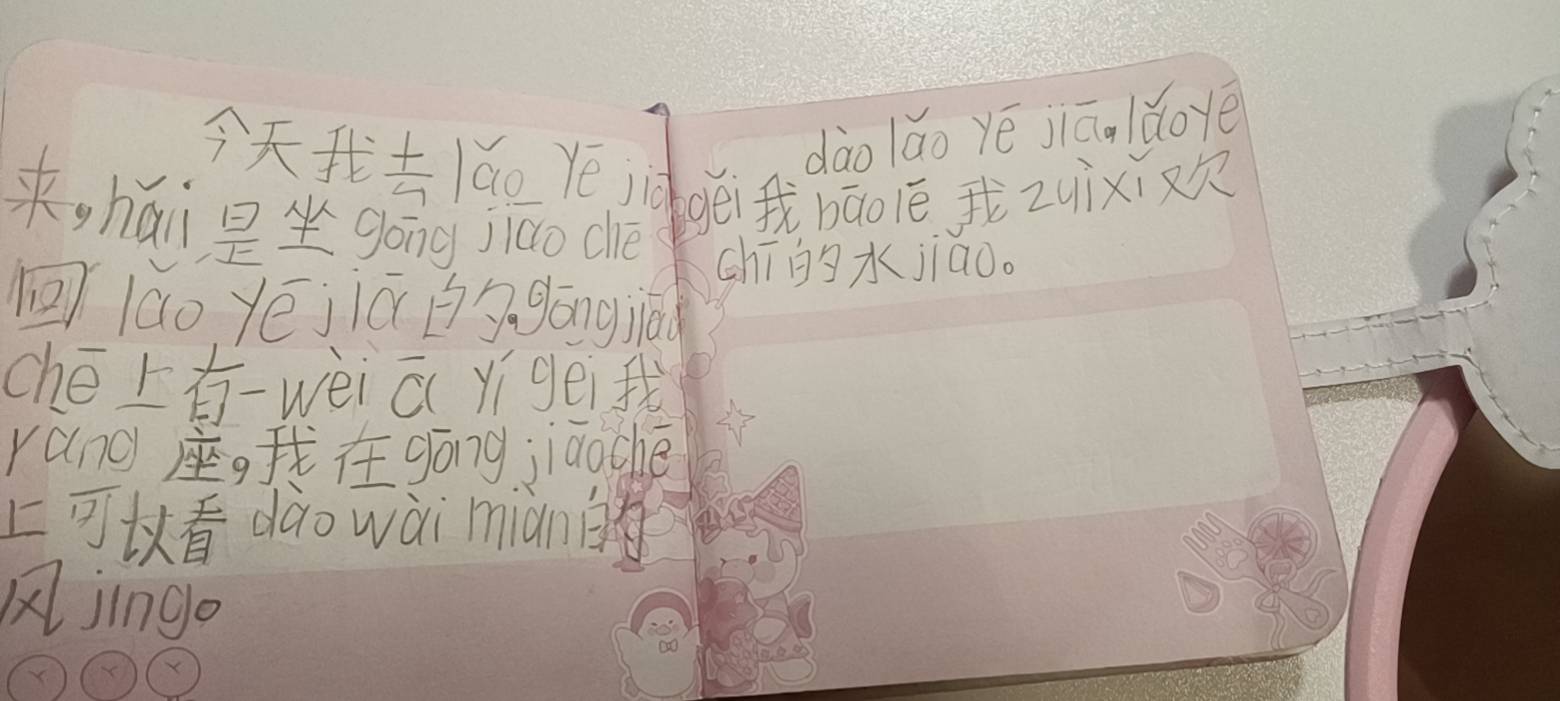 今天我去lǎo yē jiā
来,hǎi 是坐gōng jiāo chē
回lǎo yē jiā的,gōng jiāo
chē上有一wèi ā yí gěi我
ràng座,我在gōng jiāo chē
上可以看dào wài miàn的
风jǐng。
dào lǎo yē jiā,lǎo yē
gěi我bāo lē我zuì xǐ欢
chī的水jiǎo。